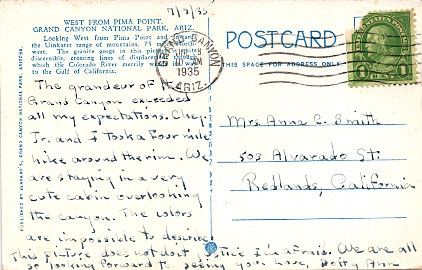 7/7/35
WEST FROM PIMA POINT,
GRAND CANYON NATIONAL PARK, ARIZ.
Looking West from Pima Point and towards
the Uinkaret range of mountains, 75 miles north-
west. The granite gorge in this picture is
discernible, crossing lines of displacement through
which the Colorado River merrily winds its way
to the Gulf of California.
The grandeur of the
Grand Canyon exceeded
all my expectations. Chey,
Jr. and I took a four mile
hike around the rim. We
are staying in a very
cute cabin overlooking
the canyon. The colors
are impossible to describe.
This picture does not do it justice I'm afraid. We are all
so looking forward to seeing you. Love, Betty Ann
PUBLISHED BY VERKAMP'S, GRAND CANYON NATIONAL PARK, ARIZONA.
GRAND CANYON
JUL 8
10 AM
1935
ARIZ.
POSTCARD
THIS SPACE FOR ADDRESS ONLY
1 1
Mrs. Anna C. Smith
503 Alvarado St.
Redlands, California